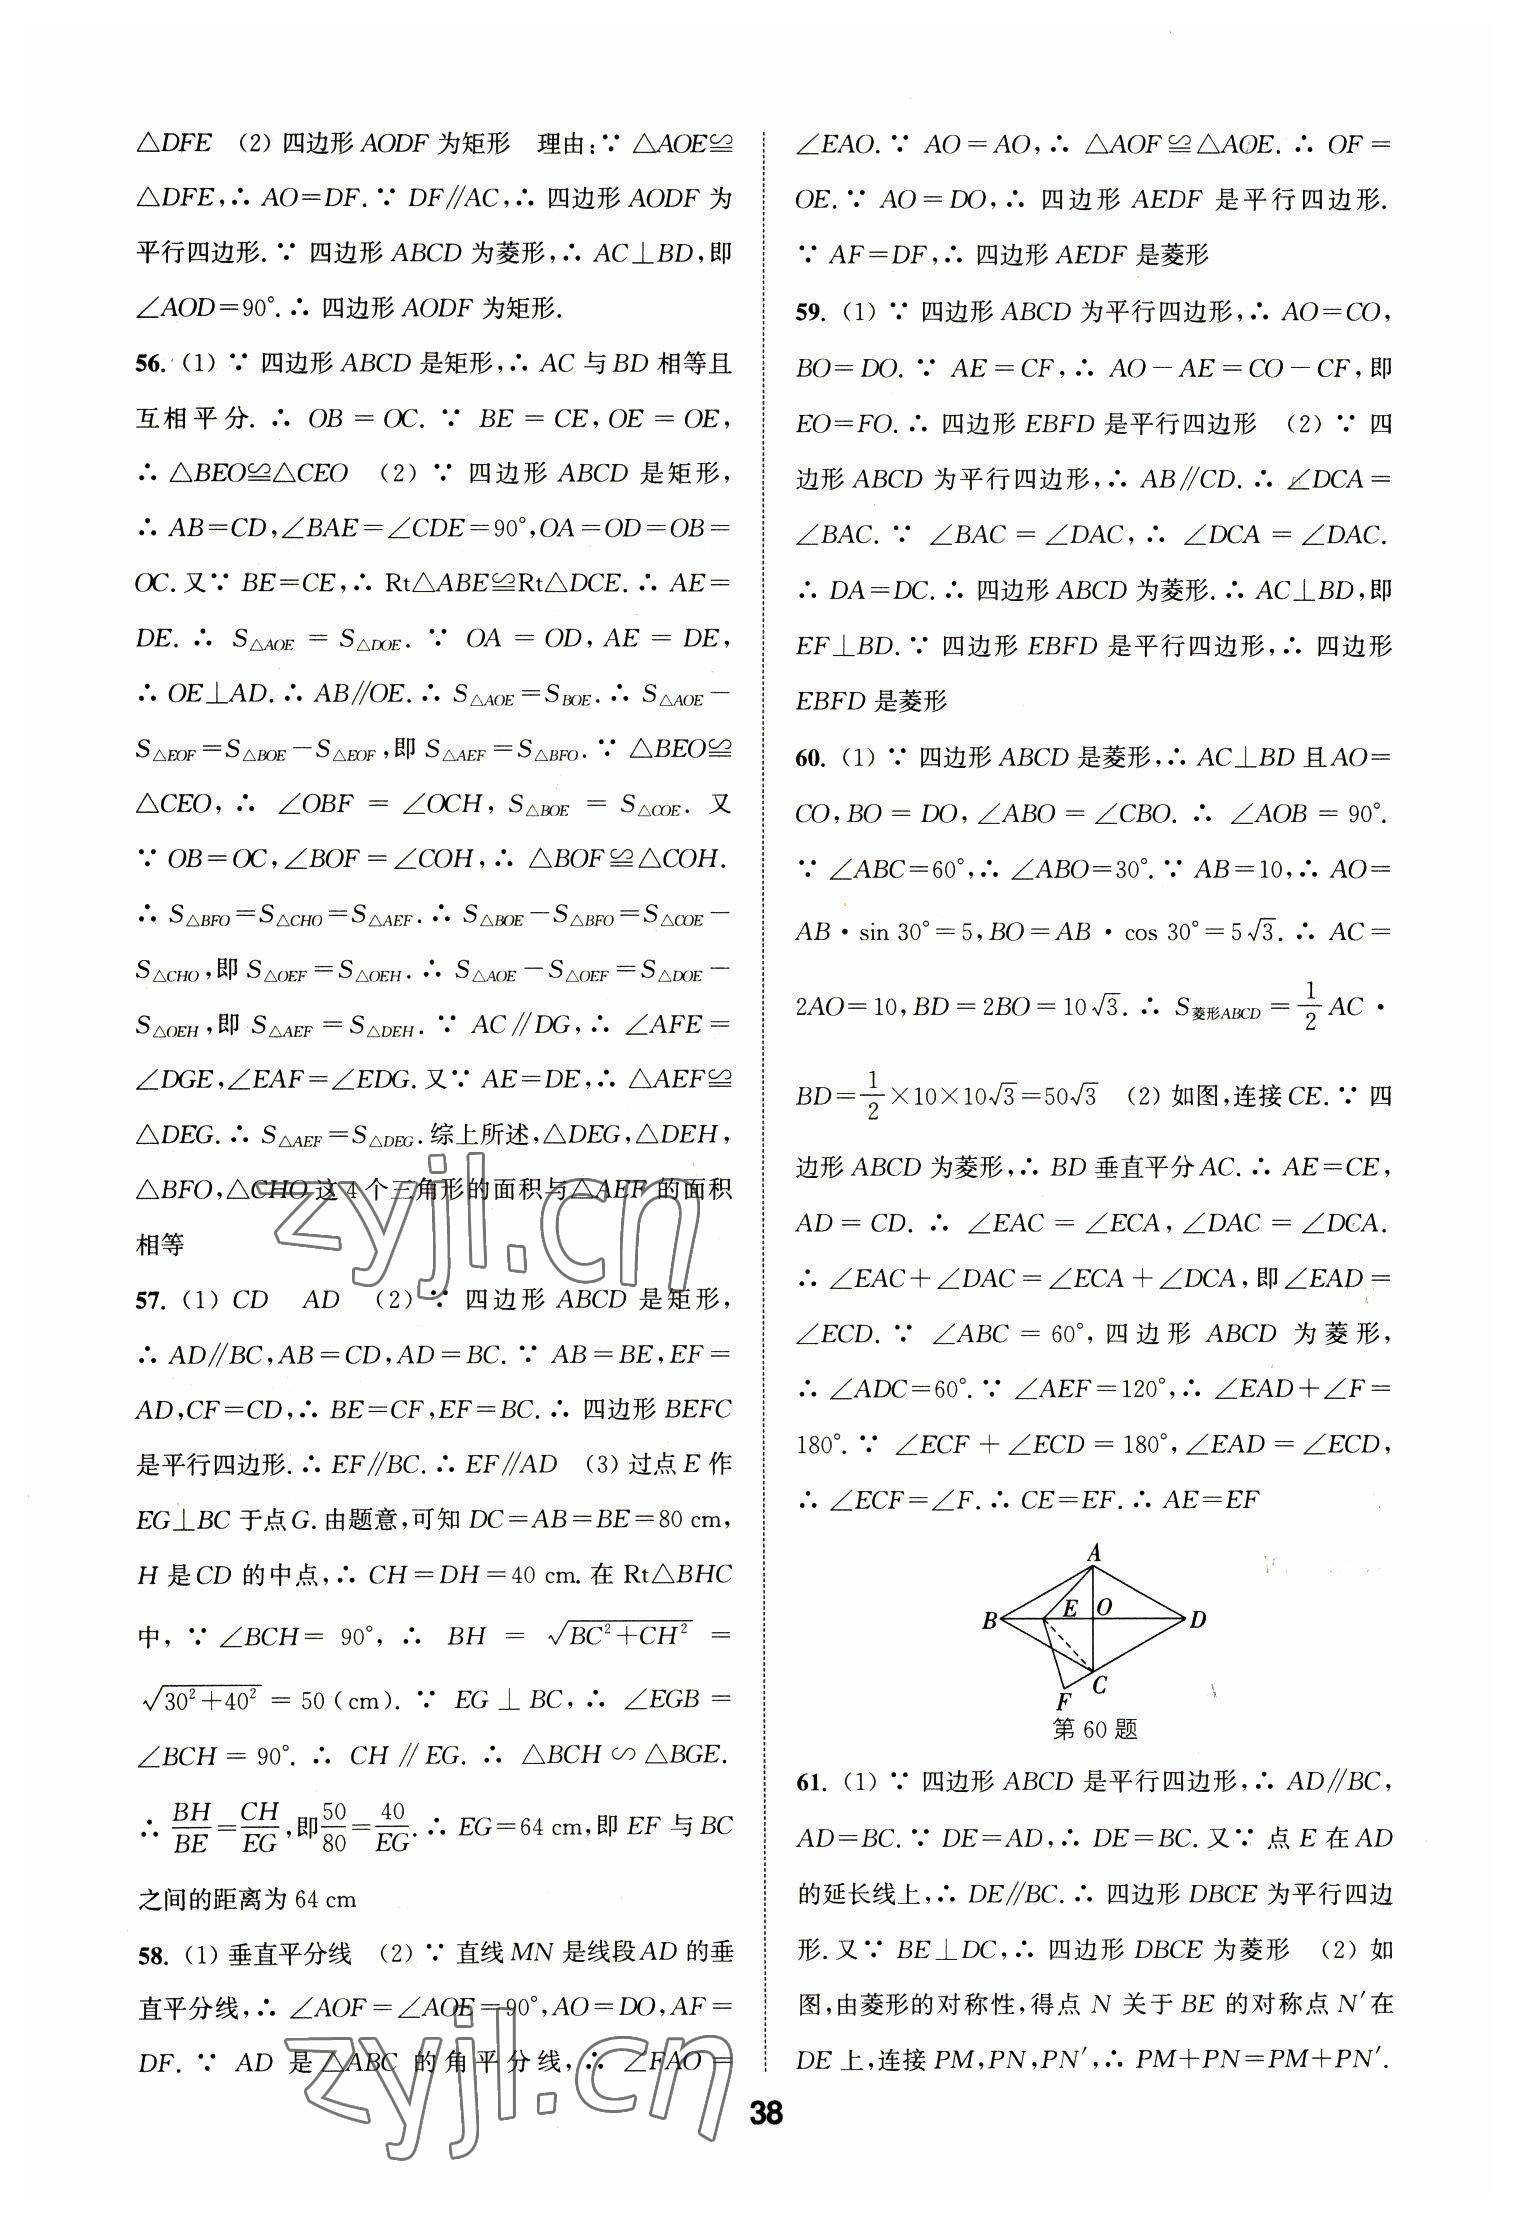 △DFE (2) 四边形 AODF 为矩形 理由:∵ △AOE≌
△DFE,∴ AO=DF.∵ DF∥AC,∴ 四边形 AODF 为
平行四边形.∵ 四边形 ABCD 为菱形,∴ AC⊥BD,即
∠AOD=90°.∴ 四边形 AODF 为矩形.
56. (1) ∵ 四边形 ABCD 是矩形,∴ AC 与 BD 相等且
互相平分.∴ OB=OC.∵ BE=CE,OE=OE,
∴ △BEO≌△CEO (2) ∵ 四边形 ABCD 是矩形,
∴ AB=CD,∠BAE=∠CDE=90°,OA=OD=OB=
OC.又∵ BE=CE,∴ Rt△ABE≌Rt△DCE.∴ AE=
DE.∴ S△AOE=S△DOE.∵ OA=OD,AE=DE,
∴ OE⊥AD.∴ AB∥OE.∴ S△AOE=SBOE.∴ S△AOE−
S△EOF=S△BOE−S△EOF,即 S△AEF=S△BFO.∵ △BEO≌
△CEO,∴ ∠OBF=∠OCH,S△BOE=S△COE.又
∵ OB=OC,∠BOF=∠COH,∴ △BOF≌△COH.
∴ S△BFO=S△CHO=S△AEF.∴ S△BOE−S△BFO=S△COE−
S△CHO,即 S△OEF=S△OEH.∴ S△AOE−S△OEF=S△DOE−
S△OEH,即 S△AEF=S△DEH.∵ AC∥DG,∴ ∠AFE=
∠DGE,∠EAF=∠EDG.又∵ AE=DE,∴ △AEF≌
△DEG.∴ S△AEF=S△DEG.综上所述,△DEG,△DEH,
△BFO,△CHO 这 4 个三角形的面积与△AEF 的面积
相等
57. (1) CD AD (2) ∵ 四边形 ABCD 是矩形,
∴ AD∥BC,AB=CD,AD=BC.∵ AB=BE,EF=
AD,CF=CD,∴ BE=CF,EF=BC.∴ 四边形 BEFC
是平行四边形.∴ EF∥BC.∴ EF∥AD (3) 过点 E 作
EG⊥BC 于点 G.由题意,可知 DC=AB=BE=80 cm,
H 是 CD 的中点,∴ CH=DH=40 cm.在 Rt△BHC
中,∵ ∠BCH=90°,∴ BH=√(BC²+CH²)=
√(30²+40²)=50(cm).∵ EG⊥BC,∴ ∠EGB=
∠BCH=90°.∴ CH∥EG.∴ △BCH∽△BGE.
∴ BH/BE=CH/EG,即50/80=40/EG.∴ EG=64 cm,即 EF 与 BC
之间的距离为 64 cm
58. (1) 垂直平分线 (2) ∵ 直线 MN 是线段 AD 的垂
直平分线,∴ ∠AOF=∠AOE=90°,AO=DO,AF=
DF.∵ AD 是△ABC 的角平分线,∴ ∠FAO=
∠EAO.∵ AO=AO,∴ △AOF≌△AOE.∴ OF=
OE.∵ AO=DO,∴ 四边形 AEDF 是平行四边形.
∵ AF=DF,∴ 四边形 AEDF 是菱形
59. (1) ∵ 四边形 ABCD 为平行四边形,∴ AO=CO,
BO=DO.∵ AE=CF,∴ AO−AE=CO−CF,即
EO=FO.∴ 四边形 EBFD 是平行四边形 (2) ∵ 四
边形 ABCD 为平行四边形,∴ AB∥CD.∴ ∠DCA=
∠BAC.∵ ∠BAC=∠DAC,∴ ∠DCA=∠DAC.
∴ DA=DC.∴ 四边形 ABCD 为菱形.∴ AC⊥BD,即
EF⊥BD.∵ 四边形 EBFD 是平行四边形,∴ 四边形
EBFD 是菱形
60. (1) ∵ 四边形 ABCD 是菱形,∴ AC⊥BD 且 AO=
CO,BO=DO,∠ABO=∠CBO.∴ ∠AOB=90°.
∵ ∠ABC=60°,∴ ∠ABO=30°.∵ AB=10,∴ AO=
AB·sin 30°=5,BO=AB·cos 30°=5√3.∴ AC=
2AO=10,BD=2BO=10√3.∴ S菱形ABCD=1/2 AC·
BD=1/2×10×10√3=50√3 (2) 如图,连接 CE.∵ 四
边形 ABCD 为菱形,∴ BD 垂直平分 AC.∴ AE=CE,
AD=CD.∴ ∠EAC=∠ECA,∠DAC=∠DCA.
∴ ∠EAC+∠DAC=∠ECA+∠DCA,即∠EAD=
∠ECD.∵ ∠ABC=60°,四边形 ABCD 为菱形,
∴ ∠ADC=60°.∵ ∠AEF=120°,∴ ∠EAD+∠F=
180°.∵ ∠ECF+∠ECD=180°,∠EAD=∠ECD,
∴ ∠ECF=∠F.∴ CE=EF.∴ AE=EF
A
B E O D
C
F
第 60 题
61. (1) ∵ 四边形 ABCD 是平行四边形,∴ AD∥BC,
AD=BC.∵ DE=AD,∴ DE=BC.又∵ 点 E 在 AD
的延长线上,∴ DE∥BC.∴ 四边形 DBCE 为平行四边
形.又∵ BE⊥DC,∴ 四边形 DBCE 为菱形 (2) 如
图,由菱形的对称性,得点 N 关于 BE 的对称点 N′在
DE 上,连接 PM,PN,PN′,∴ PM+PN=PM+PN′.
38
zyjl.cn
zyjl.cn